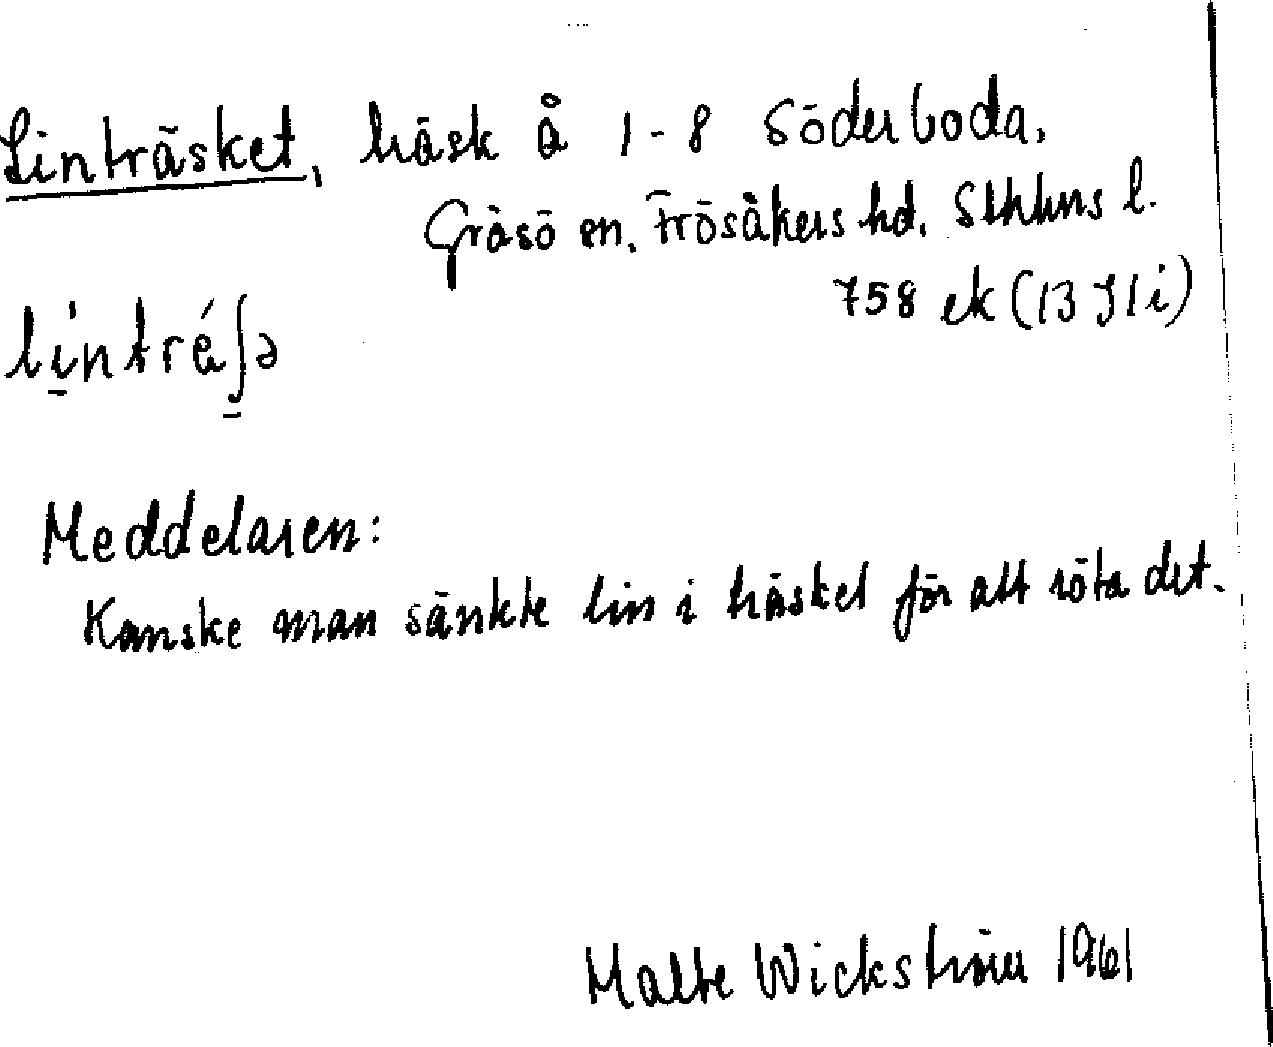 Linträsket, träsk å 1-8 Söderboda,
Gräsö sn. Frösåkers hd. Sthlms l.
758 ek (13 I 1 i)
lintré∫ə
Meddelaren:
Kanske man sänkte lin i träsket för att röta det.
Malte Wickström 1961